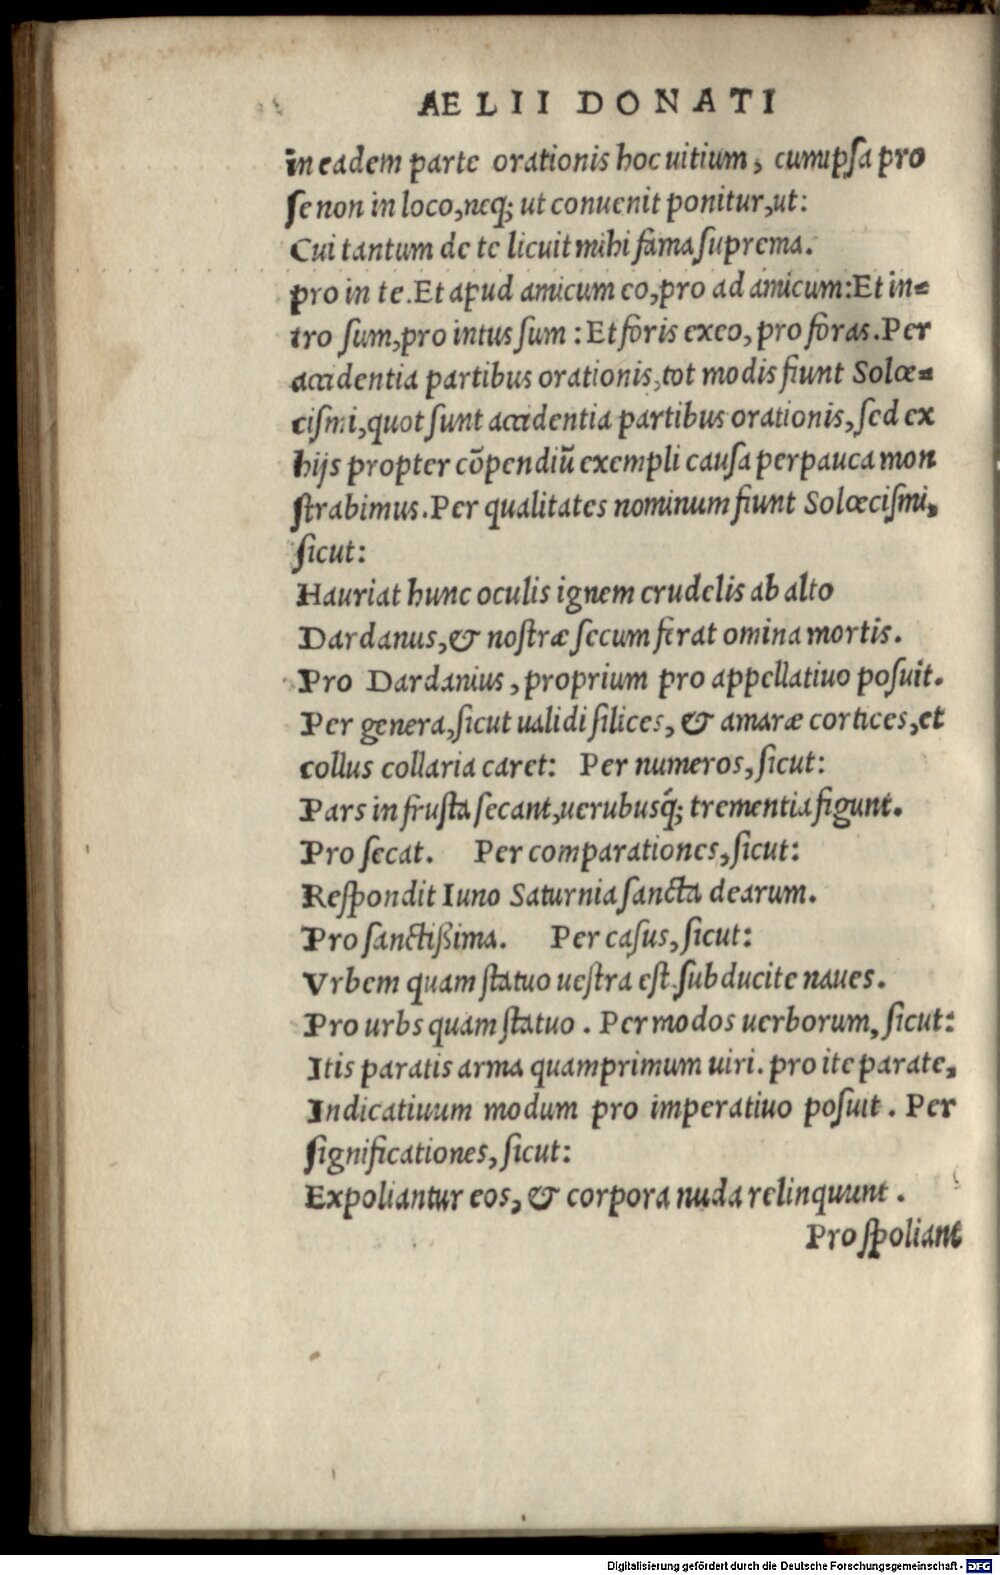 AELII DONATI
in eadem parte orationis hoc uitium, cum ipſa pro
ſe non in loco, neq; ut conuenit ponitur, ut:
Cui tantum de te licuit mihi fama ſuprema.
pro in te. Et apud amicum eo, pro ad amicum: Et in=
tro ſum, pro intus ſum: Et foris exeo, pro foras. Per
accidentia partibus orationis, tot modis fiunt Solœ=
ciſmi, quot ſunt accidentia partibus orationis, ſed ex
hijs propter cõpendiũ exempli cauſa perpauca mon
ſtrabimus. Per qualitates nominum fiunt Solœciſmi,
ſicut:
Hauriat hunc oculis ignem crudelis ab alto
Dardanus, & noſtræ ſecum ferat omina mortis.
Pro Dardanius, proprium pro appellatiuo poſuit.
Per genera, ſicut ualidi ſilices, & amaræ cortices, et
collus collaria caret: Per numeros, ſicut:
Pars in fruſta ſecant, uerubusq́; trementia figunt.
Pro ſecat. Per comparationes, ſicut:
Reſpondit Iuno Saturnia ſancta dearum.
Pro ſanctißima. Per caſus, ſicut:
Vrbem quam ſtatuo ueſtra eſt ſubducite naues.
Pro urbs quam ſtatuo. Per modos uerborum, ſicut:
Itis paratis arma quamprimum uiri. pro ite parate,
Indicatiuum modum pro imperatiuo poſuit. Per
ſignificationes, ſicut:
Expoliantur eos, & corpora nuda relinquunt.
Pro ſpoliant
Digitalisierung gefördert durch die Deutsche Forschungsgemeinschaft - DFG